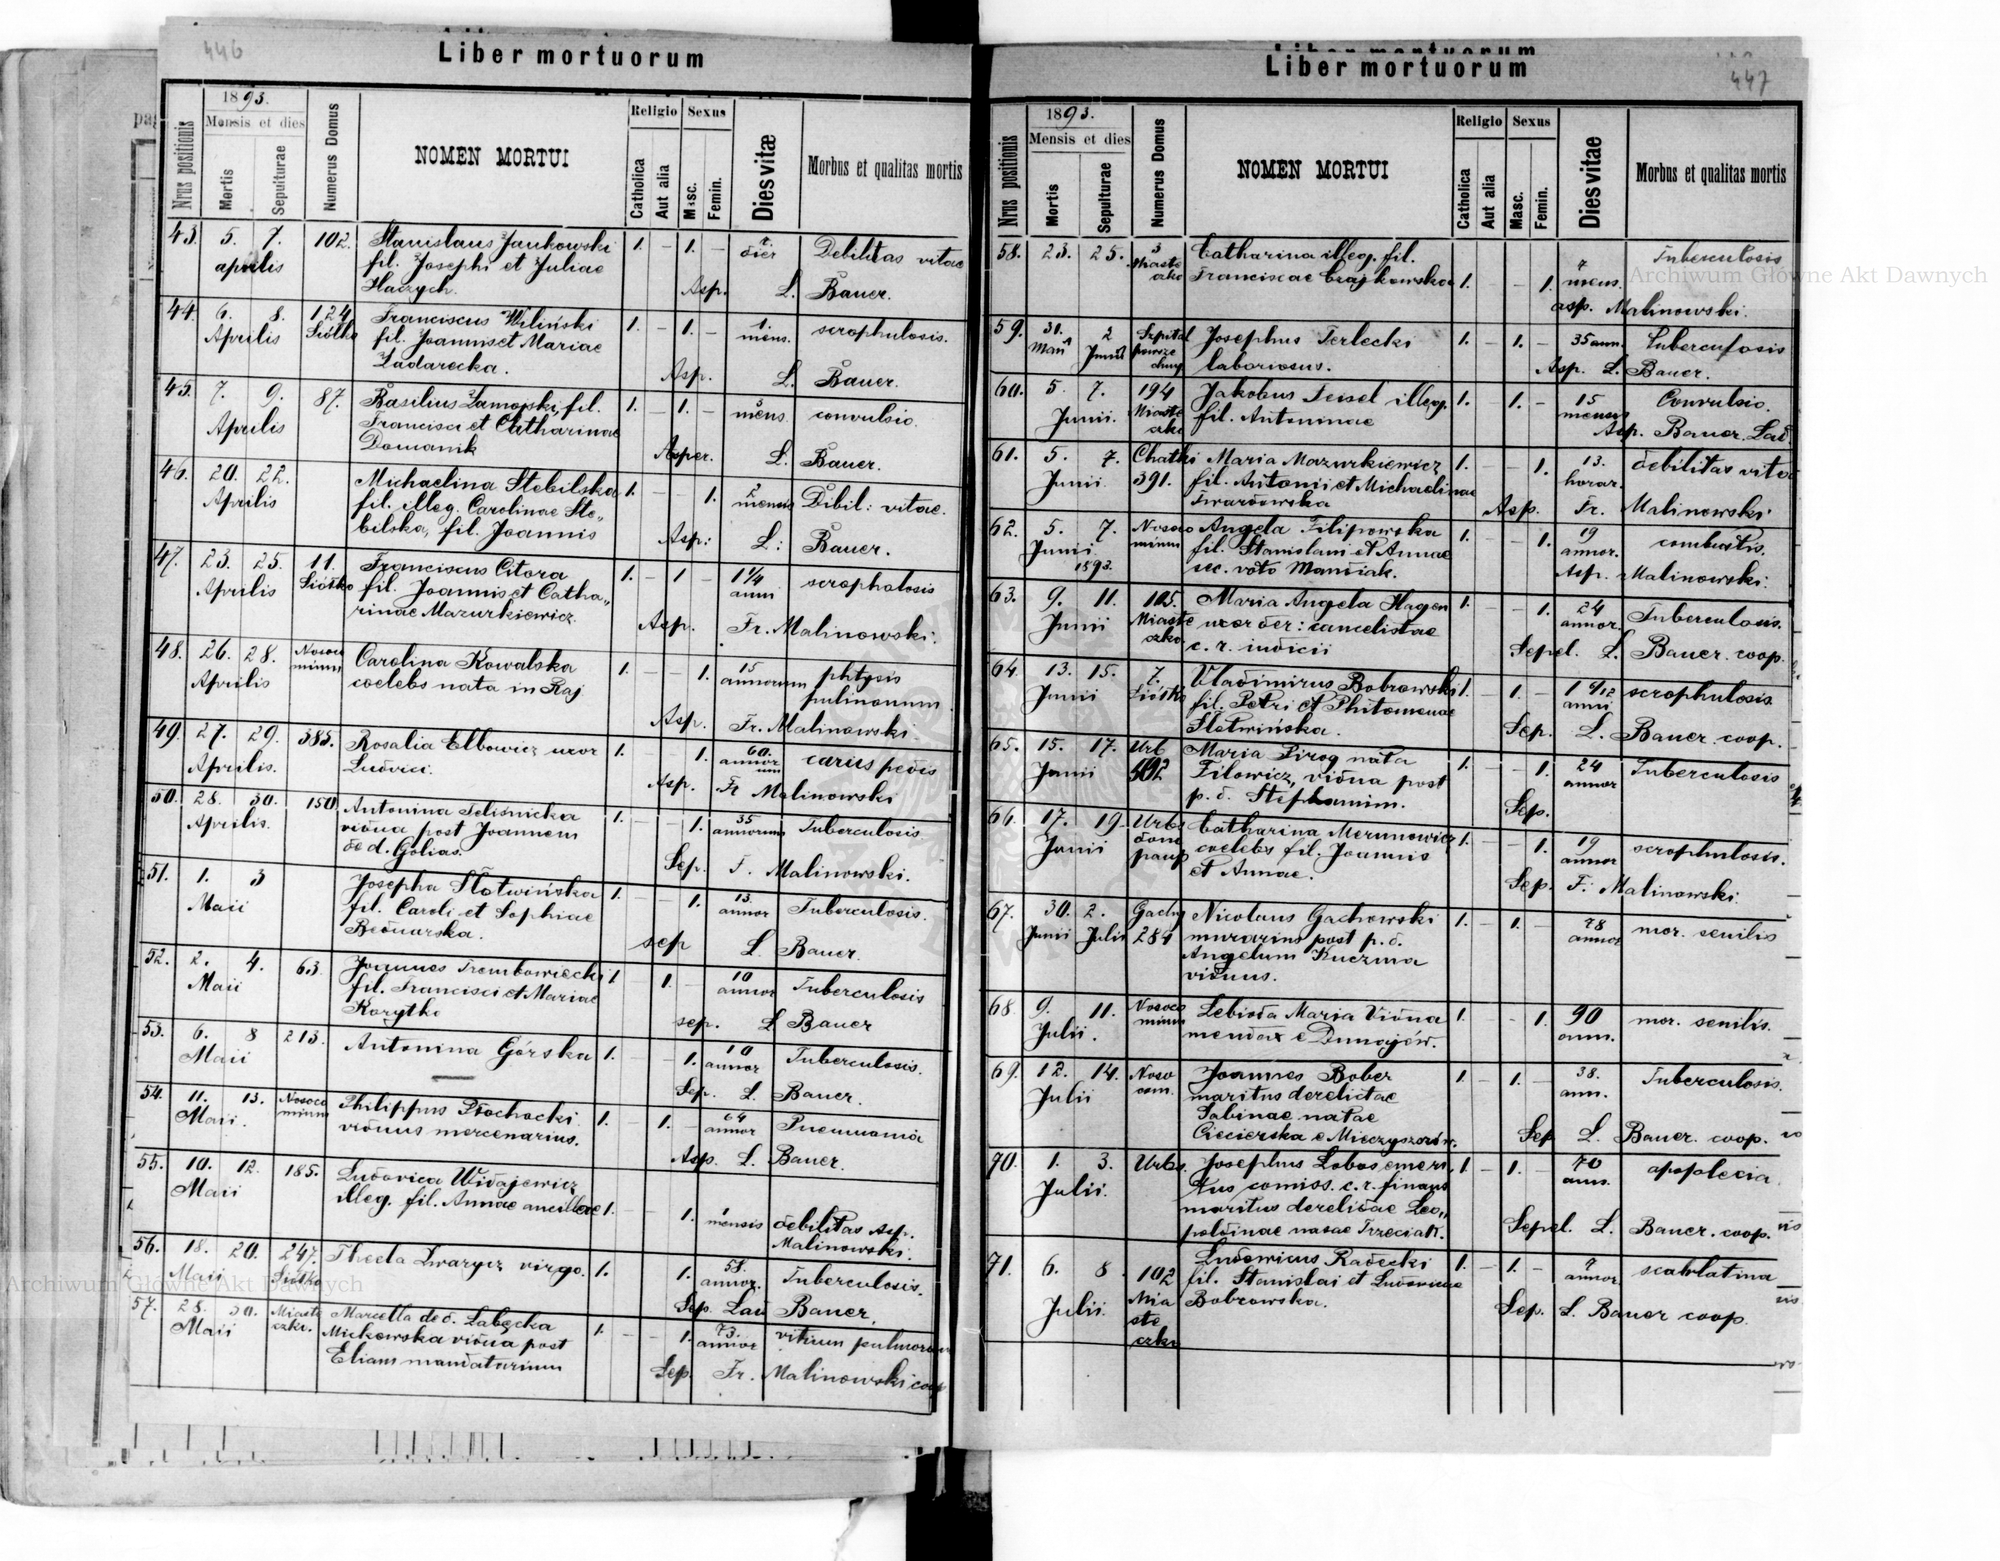 446
Liber mortuorum
1893.
Mensis et dies
Religio
Sexus
Nrus positionis
Mortis
Sepulturae
Numerus Domus
NOMEN MORTUI
Catholica
Aut alia
Masc.
Femin.
Dies vitæ
Morbus et qualitas mortis
43. 5. 7. 102. Stanislaus Jankowski 1. - 1. - Debilitas vitae
aprilis fil. Josephi et Juliae dier
Asp. L. Bauer.
44. 6. 8. 124 Franciscus Wiliński 1. - 1. - 1. scrophulosis.
Aprilis Siółko fil. Joannis et Mariae mens.
Ladarecka. Asp. L. Bauer.
45. 7. 9. 87. Basilius Zamojski, fil. 1. - 1. - 3 convulsio.
Aprilis Francisci et Catharinae mens.
Domanik Asper. L. Bauer.
46. 20. 22. Michaelina Stebilska 1. - - 1. 2 Dibil: vitae.
Aprilis fil. illeg. Carolinae Ste„ mensis
bilska, fil. Joannis Asp: L: Bauer.
47. 23. 25. 11. Franciscus Citora 1. - 1 - 1 1/4 scropholosis
Aprilis Siółko fil. Joannis et Catha„ anni
rinae Mazurkiewicz. Asp. Fr. Malinowski.
48. 26. 28. Nosoco Carolina Kowalska 1. - - 1. 15 phtysis
Aprilis minum coelebs nata in Raj annorum pulmonum
Asp. Fr. Malinowski.
49. 27. 29. 385. Rosalia Elbowicz uxor 1. - - 1. 60. caries pedis
Aprilis. Ludovici. annorum
Asp. Fr Malinowski
50. 28. 30. 150 Antonina Seliśnicka 1. - - 1. 35 Tuberculosis
Aprilis. vidua post Joannem annorum
de d. Golias. Sep. F. Malinowski.
51. 1. 3 Josepha Słotwińska 1. - - 1. 13. Tuberculosis.
Maii fil. Caroli et Sophiae annor
Bednarska. sep L Bauer.
52. 2. 4. 63. Joannes Trembowiecki 1. 1. - 10 Tuberculosis
Maii fil. Francisci et Mariae annor
Korytko sep. L Bauer
53. 6. 8 213. Antonina Górska 1. 1. 10 Tuberculosis.
Maii annor
Sep. L. Bauer.
54. 11. 13. Nosoco Philippus Płochocki 1. - 1. - 64 Pneumonia
Maii. minum viduus mercenarius. annor
Asp. L. Bauer.
55. 10. 12. 185. Ludovica Widajewicz
Maii illeg. fil. Annae ancillae 1. 1. 1 mensis debilitas Asp.
Malinowski.
56. 18. 20. 247. Thecla Zwarycz virgo. 1. 1. 58. Tuberculosis.
Maii Siółko annor.
Sep. Lad Bauer.
57. 28. 30. Miaste Marcella de d. Łabęcka 1. - - 1. 73. vitium pulmorum
Maii czko. Mickowska vidua post annor
Eliam mandatarium Sep. Fr. Malinowski coop
447
Liber mortuorum
1893.
Mensis et dies
Religio
Sexus
Nrus positionis
Mortis
Sepulturae
Numerus Domus
NOMEN MORTUI
Catholica
Aut alia
Masc.
Femin.
Dies vitae
Morbus et qualitas mortis
58. 23. 25. 3 Catharina illeg. fil. Tuberculosis
Miaste Franciscae Czajkowska 1. - - 1. 7
czko mens.
asp. Malinowski.
59. 31. 2 Szpital Josephus Terlecki 1. - 1. - 35 ann. Tuberculosis
Maii Junii powsze laboriosus.
chny Asp. L. Bauer.
60. 5. 7. 194 Jakobus Teisel illeg. 1. - 1. - 15 Convulsio.
Junii. Miaste fil. Antoninae mensis
czko Asp. Bauer. Lad
61. 5. 7. Chatki Maria Mazurkiewicz 1. - - 1. 13. debilitas vitae
Junii 391. fil. Antonii et Michaelinae horar.
Twardowska Asp. Fr. Malinowski.
62. 5. 7. Nosoco Angela Filipowska 1. - - 1. 19 combustis.
Junii minum fil. Stanislai et Annae annor.
1893. sec. voto Mandiak. Asp. Malinowski:
63. 9. 11. 105. Maria Angela Hagen 1. - - 1. 24 Tuberculosis.
Junii Miaste uxor der: cancelistae annor.
czko c. r. indicii Sepel. L. Bauer. coop.
64. 13. 15. 7. Vladimirus Bobrowski 1. - 1. - 1 9/12 scrophulosis
Junii Siółko fil. Petri et Philomenae anni
Słotwińska. Sep. L. Bauer. coop.
65. 15. 17. Urb Maria Pirog nata 1. - - 1. 24 Tuberculosis
Junii 402 Filowicz, vidua post annor
p. d. Stephanim. Sep.
66. 17. 19 Urbs Catharina Merunowicz 1. - - 1. 19 scrophulosis.
Junii dom coelebs fil. Joannis annor
paup et Annae. Sep. F. Malinowski.
67. 30. 2. Gachy Nicolaus Gachowski 1. - 1. - 78 mor. senilis
Junii Julii 284 murarius post p. d. annor
Angelum Kuczma
viduus.
68 9. 11. Nosoco Lebioda Maria Vidua 1. - - 1. 90 mor. senilis.
Julii. minum mendax e Dunajów. ann.
69. 12. 14. Noso Joannes Bober 1. - 1. - 38. Tuberculosis.
Julii com. maritus derelictae ann.
Sabinae natae
Ciecierska e Mieczyszczów. Sep L. Bauer. coop.
70. 1. 3. Urbs. Josephus Lobos emeri„ 1. - 1. - 70 apoplecia
Julii. tus comiss. c. r. finans ann.
maritus derelictae Leo„
poldinae natae Trzeciak. Sepel. L. Bauer. coop.
71. 6. 8 102 Ludowicus Radecki 1. - 1. - 7 scarlatina
Julii. Mia fil. Stanislai et Ludovicae annor
ste Bobrowska. Sep. L. Bauer coop.
czko
Archiwum Główne Akt Dawnych
Archiwum Główne Akt Dawnych